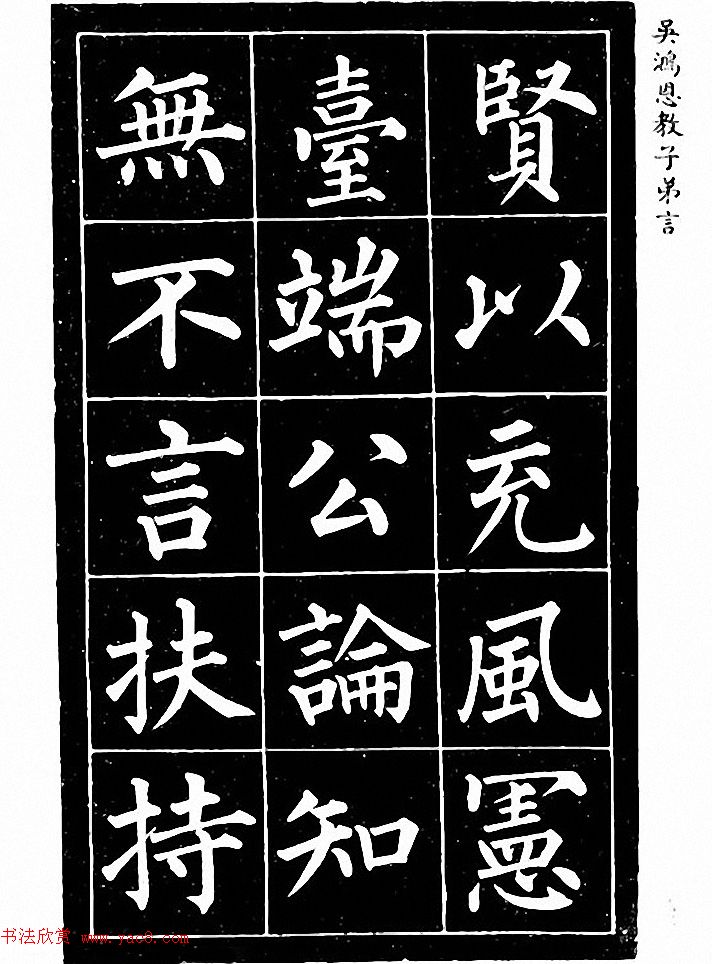 吴鴻恩教子弟言
賢以充風憲
臺端公論知
無不言扶持
书法欣赏 www.yac8.com